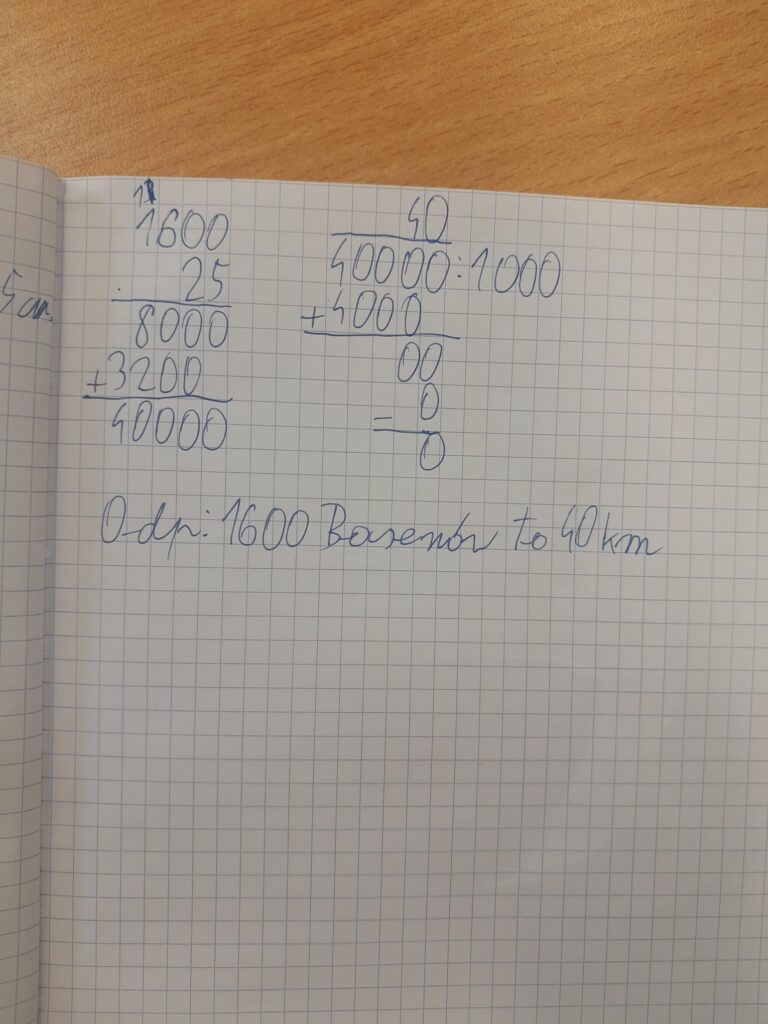 5 cm.
11
1600
. 25
8000
+3200
40000
40
40000:1000
+4000
00
- 0
0
Odp: 1600 Basenów to 40 km